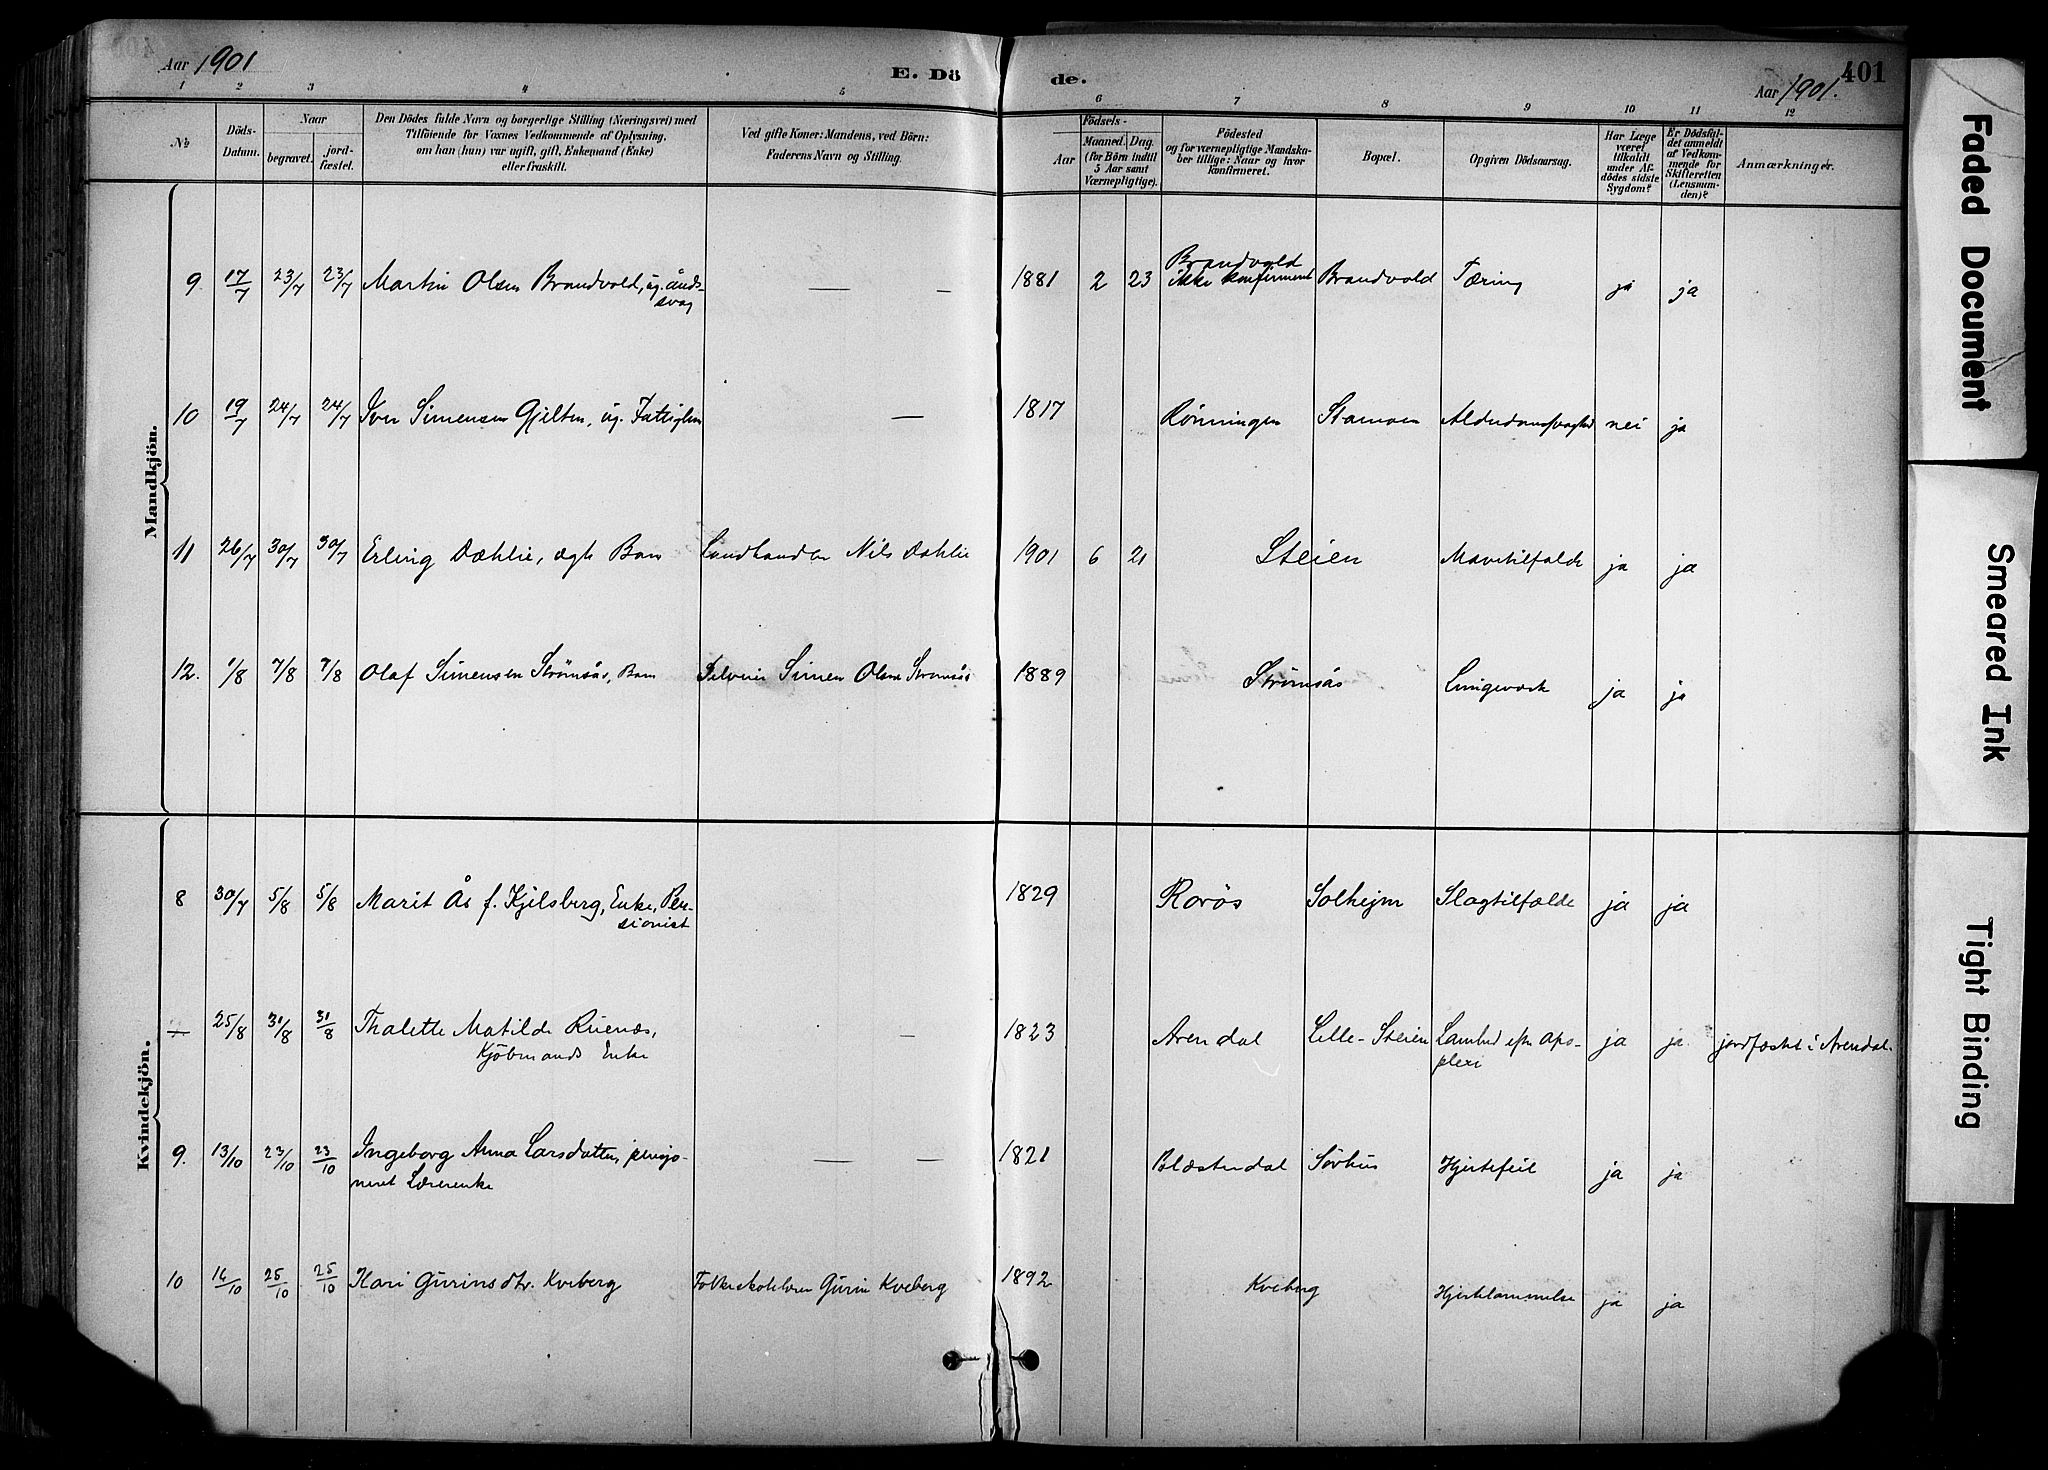 Aar 1901
E. Dö
de.
401
Aar 1901.
1 2 3 4 5 6 7 8 9 10 11 12
№
Döds-
Datum.
Naar
begravet.
jord-
fæstet.
Den Dödes fulde Navn og borgerlige Stilling (Næringsvei) med
Tilföiende for Voxnes Vedkommende af Oplysning,
om han (hun) var ugift, gift, Enkemand (Enke)
eller fraskilt.
Ved gifte Koner: Mandens, ved Börn:
Faderens Navn og Stilling.
Födsels-
Aar
Maaned.
Dag.
(for Börn indtil
5 Aar samt
Værnepligtige).
Födested
og for værnepligtige Mandska-
ber tillige: Naar og hvor
konfirmeret.
Bopæl.
Opgiven Dödsaarsag.
Har Læge
været
tilkaldt
under Af-
dödes sidste
Sygdom?
Er Dödsfal-
det anmeldt
af Vedkom-
mende for
Skifteretten
(Lensman-
den)?
Anmærkninger.
Mandkjön.
9 17/7 23/7 23/7 Martin Olsen Brandvold, ug. ånds-
svag
— — 1881 2 23 Brandvold
ikke konfirmeret
Brandvold Tæring ja ja
10 19/7 24/7 24/7 Iver Simensen Gjelten, ug. Fattiglem — 1817 Rönningen Stamoen nei ja
11 26/7 30/7 30/7 Erling Dæhlie, ægte Barn Landhandler Nils Dæhlie 1901 6 21 Steien Mavetilfælde ja ja
12. 1/8 7/8 7/8 Olaf Simensen Strömsås, Barn Selveier Simen Olsen Strömsås 1889 Strömsås ja ja
Kvindekjön.
8 30/7 5/8 5/8 Marit Ås f. Kjelsberg, Enke, Pen-
sionist
1829 Rorös Solhejm Slagtilfælde ja ja
— 25/8 31/8 31/8 Thalette Matilde Ruenæs,
Kjöbmands Enke
— 1823 Arendal Lille-Steien Lamhed efter Apo-
plexi
ja ja jordfæstet i Arendal.
9. 13/10 23/10 23/10 Ingeborg Anna Larsdatter, pensjo-
neret Lærerenke
— — 1821 Blæsterdal Sörhus Hjertefeil ja ja
10 16/10 25/10 25/10 Kari Gurinsdtr. Kveberg Folkeskolelærer Gurin Kveberg 1892 Kveberg Hjertelammelse ja ja
Faded Document
Smeared Ink
Tight Binding